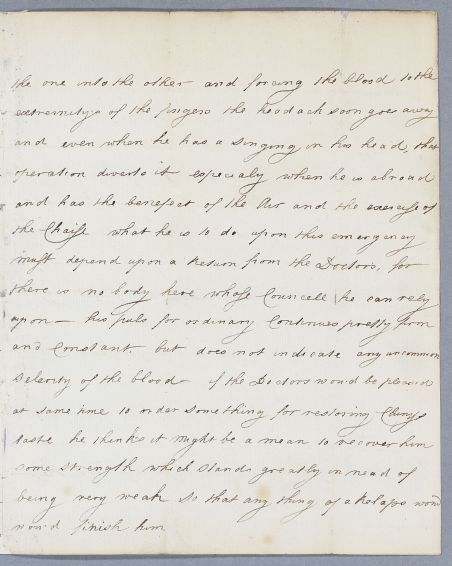 the one into the other and forcing the blood to the
extremitys of the fingers the headach soon goes away
and even when he has a singing in his head, that
operation diverts it especialy when he is abroad
and has the benefset of the Air and the exercise of
the Chaise what he is to do upon this emergency
must depend upon a Return from the Doctors, for
there is no body here whose Councell he can rely
upon — his puls for ordinary Continues pretty firm
and Constant. but does not indicate any uncommon
Selerity of the blood if the Doctors would be pleased
at same time to order something for restoring
taste he thinks it might be a mean to recover him
some strength which stands greatly in need of
being very weak so that any thing of a Relaps would
would finish him